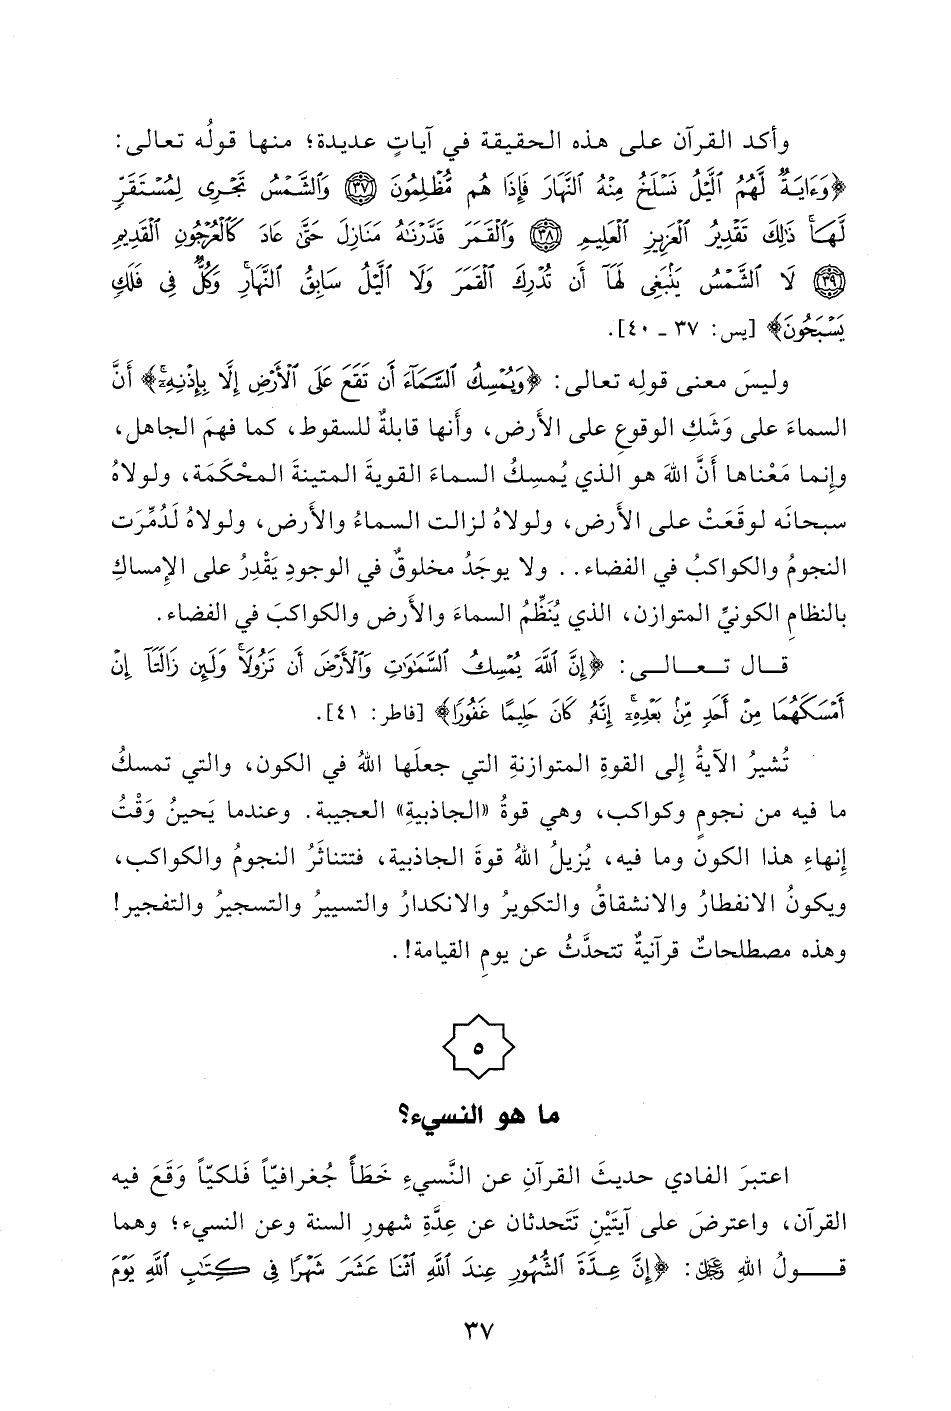 وأكد القرآن على هذه الحقيقة في آياتٍ عديدة؛ منها قولُه تعالى:
﴿وَءَايَةٌ لَّهُمُ ٱلَّيْلُ نَسْلَخُ مِنْهُ ٱلنَّهَارَ فَإِذَا هُم مُّظْلِمُونَ ﴿٣٧﴾ وَٱلشَّمْسُ تَجْرِى لِمُسْتَقَرٍّ
لَّهَا ۚ ذَٰلِكَ تَقْدِيرُ ٱلْعَزِيزِ ٱلْعَلِيمِ ﴿٣٨﴾ وَٱلْقَمَرَ قَدَّرْنَٰهُ مَنَازِلَ حَتَّىٰ عَادَ كَٱلْعُرْجُونِ ٱلْقَدِيمِ
﴿٣٩﴾ لَا ٱلشَّمْسُ يَنۢبَغِى لَهَآ أَن تُدْرِكَ ٱلْقَمَرَ وَلَا ٱلَّيْلُ سَابِقُ ٱلنَّهَارِ ۚ وَكُلٌّ فِى فَلَكٍ
يَسْبَحُونَ﴾ [يس: ٣٧ ـ ٤٠].
وليسَ معنى قولِه تعالى: ﴿وَيُمْسِكُ ٱلسَّمَآءَ أَن تَقَعَ عَلَى ٱلْأَرْضِ إِلَّا بِإِذْنِهِۦٓ ۚ﴾ أَنَّ
السماءَ على وَشَكِ الوقوعِ على الأرض، وأَنها قابلةٌ للسقوط، كما فهمَ الجاهل،
وإِنما مَعْناها أَنَّ اللهَ هو الذي يُمسِكُ السماءَ القويةَ المتينةَ المحْكَمَة، ولولاهُ
سبحانَه لوقَعَتْ على الأرض، ولولاهُ لزالت السماءُ والأرض، ولولاهُ لَدُمِّرَت
النجومُ والكواكبُ في الفضاء.. ولا يوجَدُ مخلوقٌ في الوجودِ يَقْدِرُ على الإِمساكِ
بالنظامِ الكونيِّ المتوازن، الذي يُنَظِّمُ السماءَ والأَرض والكواكبَ في الفضاء.
قـال تـعـالـى: ﴿إِنَّ ٱللَّهَ يُمْسِكُ ٱلسَّمَٰوَٰتِ وَٱلْأَرْضَ أَن تَزُولَا ۚ وَلَئِن زَالَتَآ إِنْ
أَمْسَكَهُمَا مِنْ أَحَدٍ مِّنۢ بَعْدِهِۦٓ ۚ إِنَّهُۥ كَانَ حَلِيمًا غَفُورًا﴾ [فاطر: ٤١].
تُشيرُ الآيةُ إِلى القوةِ المتوازنةِ التي جعلَها اللهُ في الكون، والتي تمسكُ
ما فيه من نجومٍ وكواكب، وهي قوةُ «الجاذبيةِ» العجيبة. وعندما يَحينُ وَقْتُ
إِنهاءِ هذا الكون وما فيه، يُزيلُ اللهُ قوةَ الجاذبية، فتتناثَرُ النجومُ والكواكب،
ويكونُ الانفطارُ والانشقاقُ والتكويرُ والانكدارُ والتسييرُ والتسجيرُ والتفجير!
وهذه مصطلحاتٌ قرآنيةٌ تتحدَّثُ عن يومِ القيامة!.
٥
ما هو النسيء؟
اعتبرَ الفادي حديثَ القرآنِ عن النَّسيءِ خَطَأً جُغرافيّاً فَلكيّاً وَقَعَ فيه
القرآن، واعترضَ على آيتَيْنِ تَتَحدثان عن عِدَّةِ شهورِ السنة وعن النسيء؛ وهما
قــولُ اللهِ ﷻ: ﴿إِنَّ عِدَّةَ ٱلشُّهُورِ عِندَ ٱللَّهِ ٱثْنَا عَشَرَ شَهْرًا فِى كِتَٰبِ ٱللَّهِ يَوْمَ
٣٧